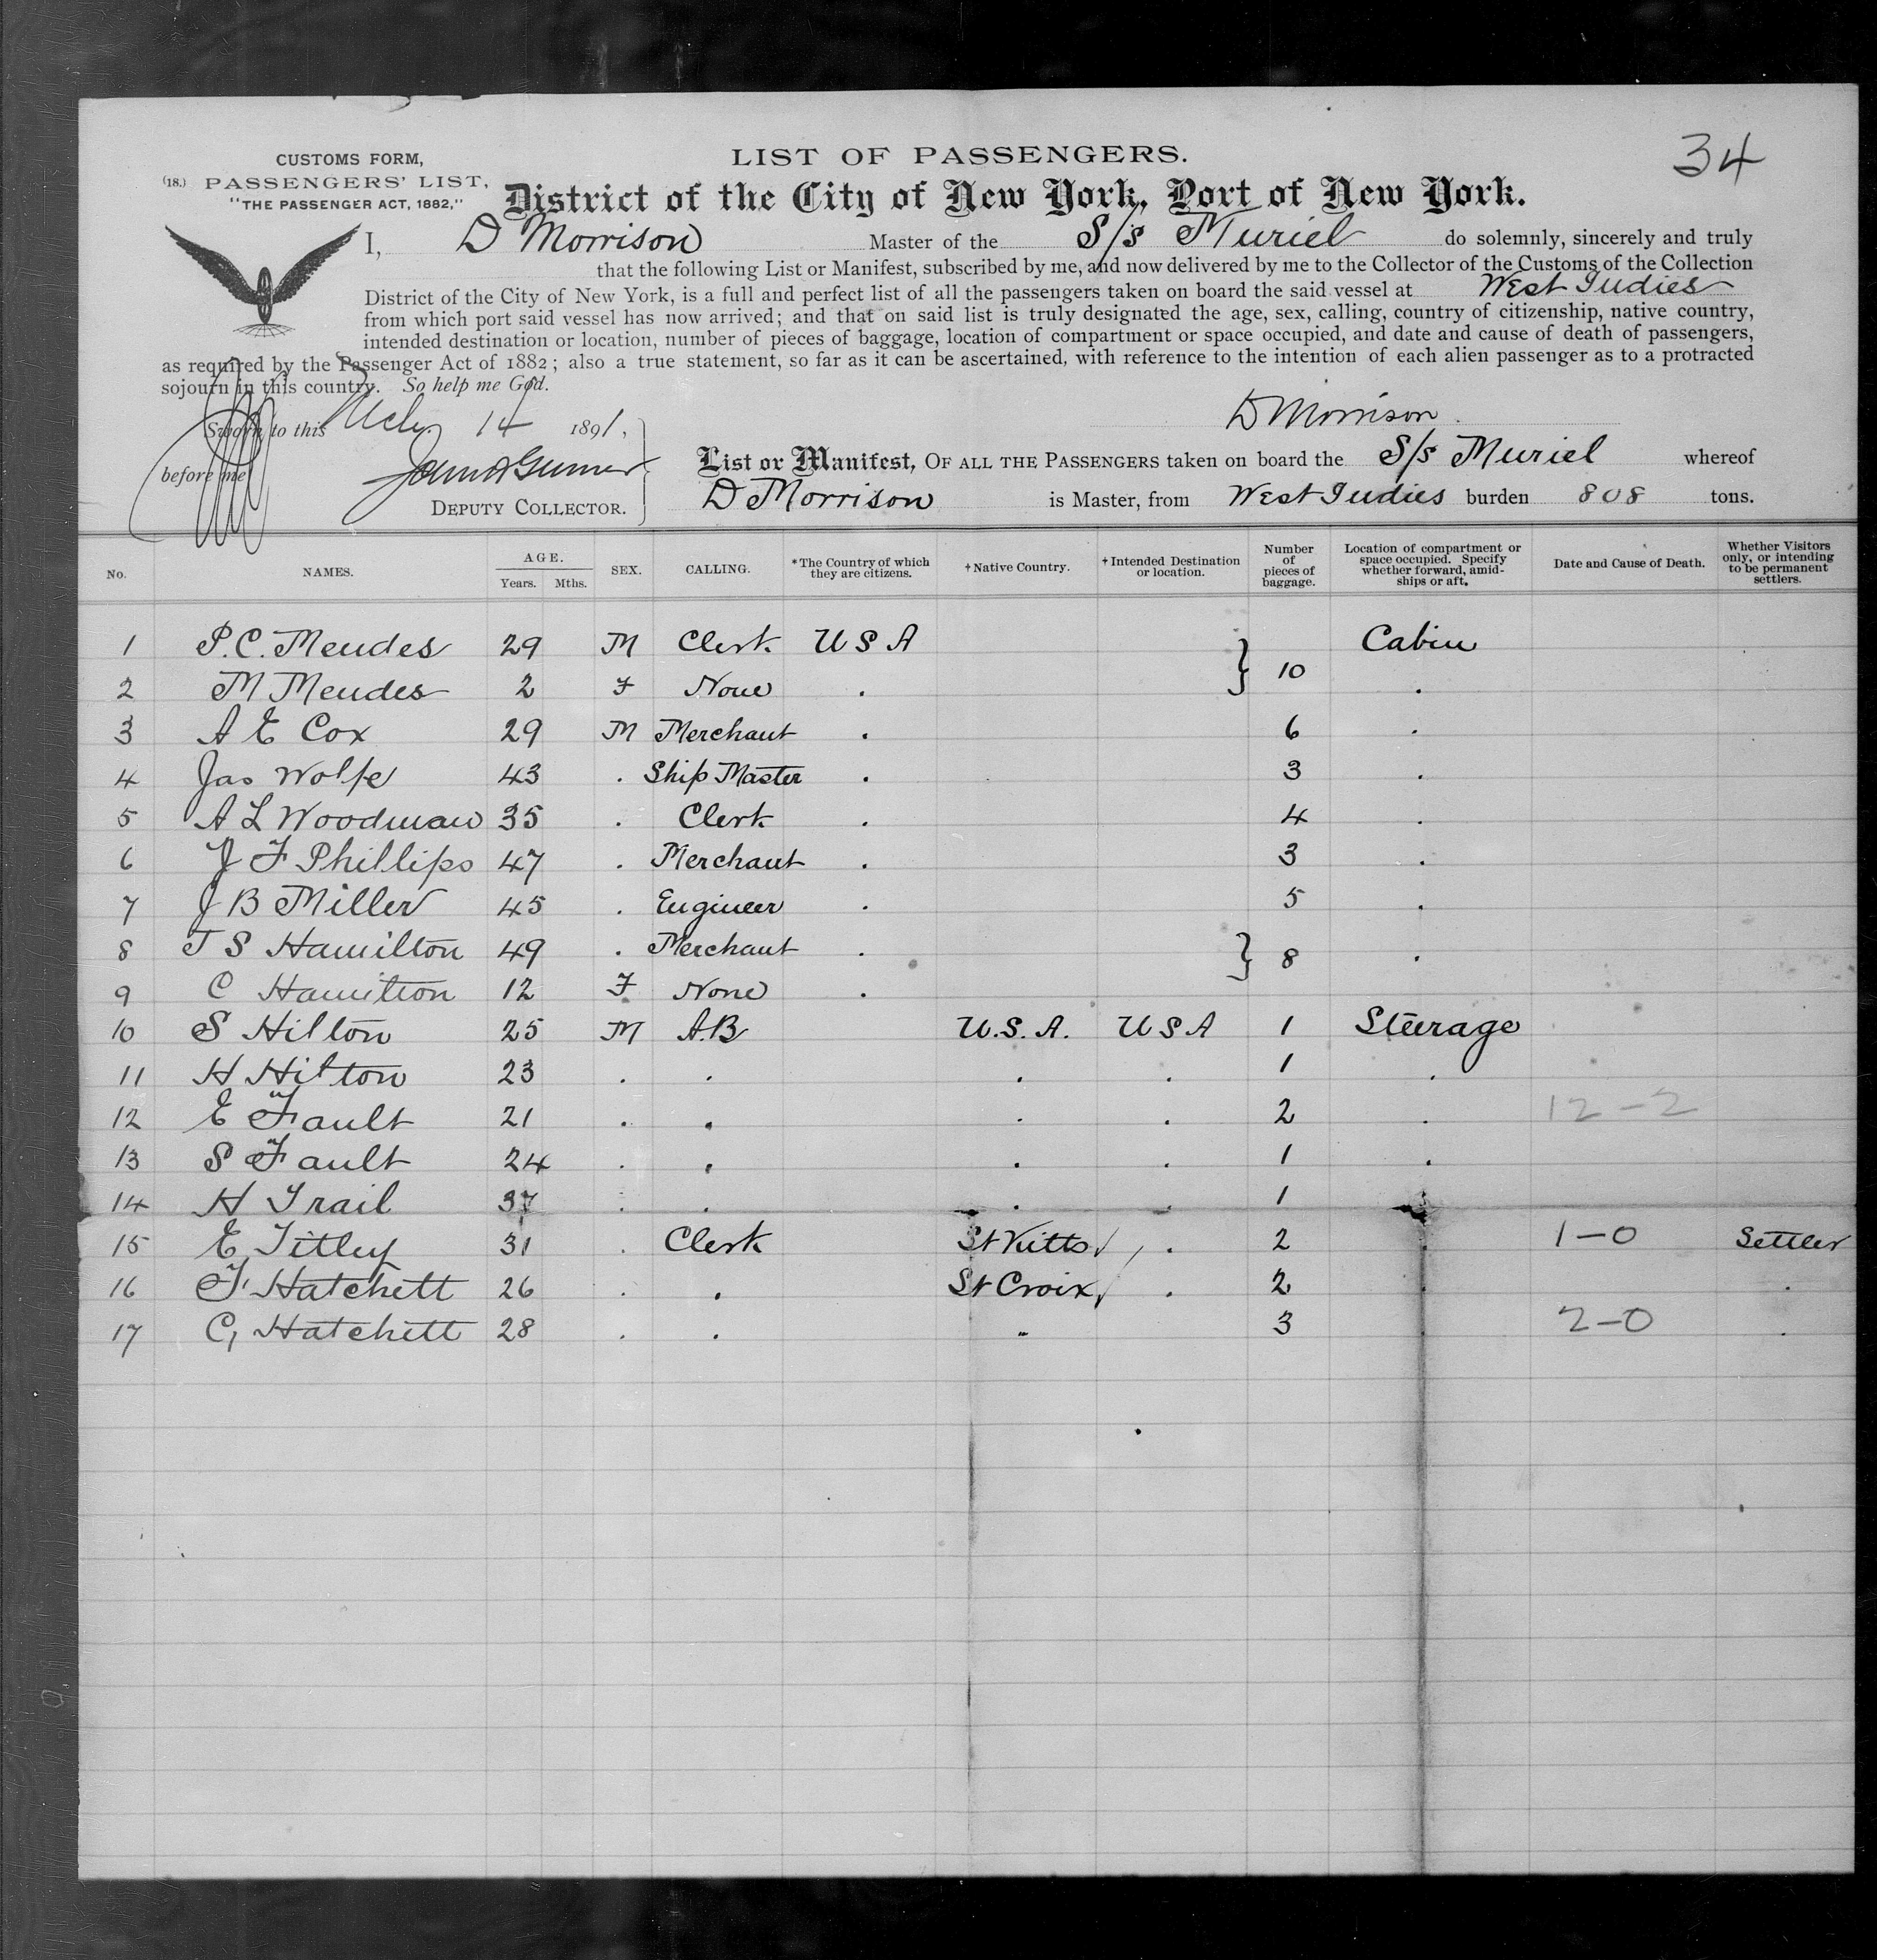 34
CUSTOMS FORM,
(18.) PASSENGERS' LIST,
"THE PASSENGER ACT, 1882,"
LIST OF PASSENGERS.
District of the City of New York, Port of New York.
I, D Morrison Master of the S/s Muriel do solemnly, sincerely and truly
that the following List or Manifest, subscribed by me, and now delivered by me to the Collector of the Customs of the Collection
District of the City of New York, is a full and perfect list of all the passengers taken on board the said vessel at West Indies
from which port said vessel has now arrived; and that on said list is truly designated the age, sex, calling, country of citizenship, native country,
intended destination or location, number of pieces of baggage, location of compartment or space occupied, and date and cause of death of passengers,
as required by the Passenger Act of 1882; also a true statement, so far as it can be ascertained, with reference to the intention of each alien passenger as to a protracted
sojourn in this country. So help me God.
D Morrison
Sworn to this Mch 14 1891,
before me
DEPUTY COLLECTOR.
List or Manifest, OF ALL THE PASSENGERS taken on board the S/s Muriel whereof
D Morrison is Master, from West Indies burden 808 tons.
No. NAMES. AGE. Years. Mths. SEX. CALLING. *The Country of which they are citizens. †Native Country. †Intended Destination or location. Number of pieces of baggage. Location of compartment or space occupied. Specify whether forward, amidships or aft. Date and Cause of Death. Whether Visitors only, or intending to be permanent settlers.
1 P. C. Mendes 29 M Clerk USA } 10 Cabin
2 M Mendes 2 F None . .
3 A E Cox 29 M Merchant . 6 .
4 Jas Wolfe 43 . Ship Master . 3 .
5 A L Woodman 35 . Clerk . 4 .
6 J F Phillips 47 . Merchant . 3 .
7 J B Miller 45 . Engineer . 5 .
8 T S Hamilton 49 . Merchant . } 8 .
9 C Hamilton 12 F None .
10 S Hilton 25 M A.B U.S.A. USA 1 Steerage
11 H Hilton 23 . . . . 1 .
12 E Fault 21 . . . . 2 . 12-2
13 S Fault 24 . . . . 1 .
14 H Trail 37 . . . . 1 .
15 E Titley 31 . Clerk St Kitts . 2 . 1-0 Settler
16 F Hatchett 26 . . St Croix . 2 . .
17 C Hatchett 28 . . " 3 . 2-0 .